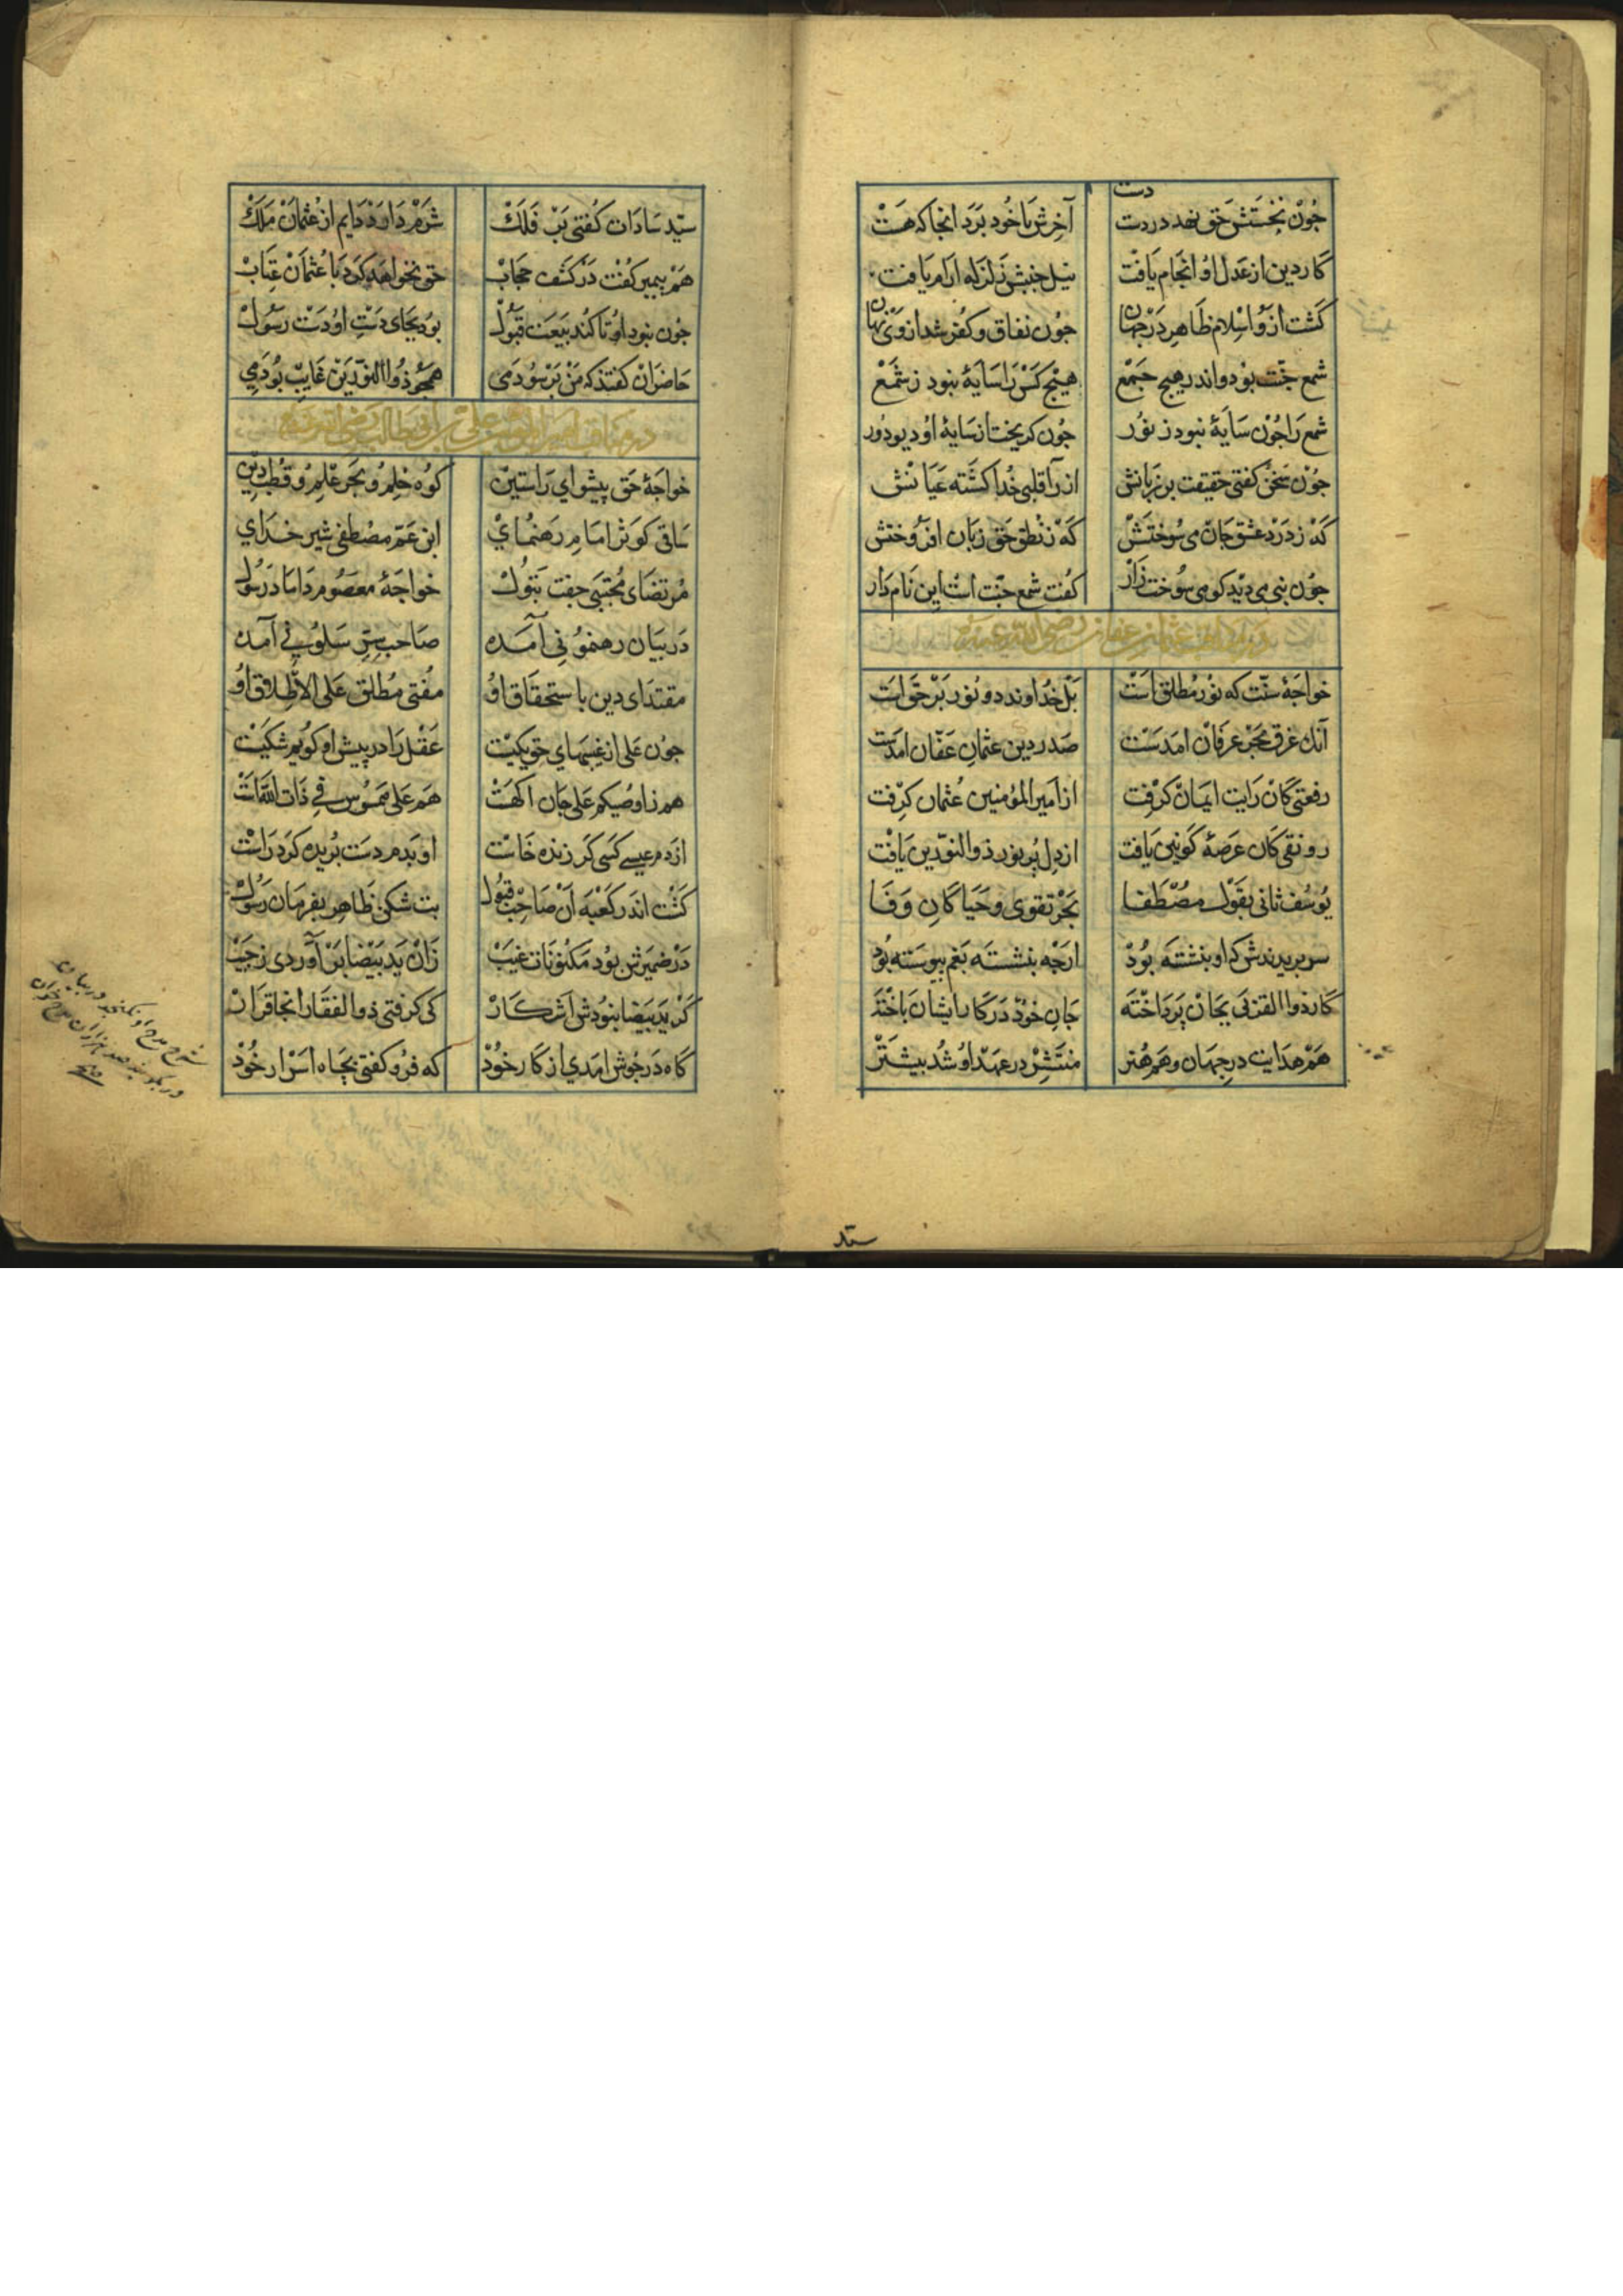 دست
جون نخستش حق نهد در دست آخرش با خود برد انجا که هست
کار دین از عدل او انجام یافت نیل جنبش زلزله ارام یافت
کشت ازو اسلام ظاهر در جهان جون نفاق و کفر شد از وی نهان
شمع جنت بود و اندر هیج جمع هیج کس را سایۀ نبود ز شمع
شمع را جون سایۀ نبود ز نور جون کریخت از سایۀ او دیو دور
جون سخن کفتی حقیقت بر زبانش از رآ قلبی خدا کشته عیانش
که ز درد عشق جان می سوختش که ز نطق حق زبان افروختش
جون نبی می دید کو می سوخت زار کفت شمع جنت است این نام دار
در عثمان بن عفان رضی الله عنه
خواجۀ سنت که نور مطلق است بل خداوند دو نور بر حق است
آنک غرق بحر عرفان امدست صدر دین عثمان عفان امدست
رفعتی کان رایت ایمان کرفت از امیر المؤمنین عثمان کرفت
رونقی کان عرصۀ کونین یافت از دل پر نور ذو النورین یافت
یوسف ثانی بقول مصطفا بحر تقوی و حیا کان وفا
سر بریدندش که او بنشسته بود ارجه بنشسته بغم پیوسته بود
کار ذوا القربی بجان پرداخته جان خود در کار ایشان باخته
هم هدایت در جهان و هم هنر منتشر در عهد او شد بیشتر
سید
سید سادات کفتی بر فلک شرم دارد دایم از عثمان ملک
هم پیمبر کفت در کشف حجاب حق نخواهد کرد با عثمان عتاب
جون نبود او تا کند بیعت قبول بود بجای دست او دست رسول
حاضران کفتند که من بر سودمی همجو ذوا النورین غایب بودمی
در علی بن ابی طالب رضی الله عنه
خواجۀ حق پیشوای راستین کوه حلم و بحر علم و قطب دین
ساقی کوثر امام رهنمای ابن عم مصطفی شیر خدای
مرتضای مجتبی جفت بتول خواجۀ معصوم داماد رسول
در بیان رهنمونی آمده صاحب سر سلونی آمده
مقتدای دین باستحقاق او مفتی مطلق علی الاطلاق او
جون علی از غیبهای حق یکیست عقل را در پیش او کویم شکیست
هم ز اوصیکم علی جان اکهست هم علی ممسوس فی ذات الله است
از دم عیسی کسی کر زنده خاست او بدم دست بریده کرد راست
کشت اندر کعبه آن صاحب قبول بت شکن ظاهر بفرمان رسول
در ضمیرش بود مکنونات غیب زان ید بیضا بر آوردی ز جیب
کر ید بیضا نبودش اشکار کی کرفتی ذو الفقار انجا قرار
کاه در جوش امدی از کار خود که فرو کفتی بجاه اسرار خود
شرح مدح او نکنجد در بیان